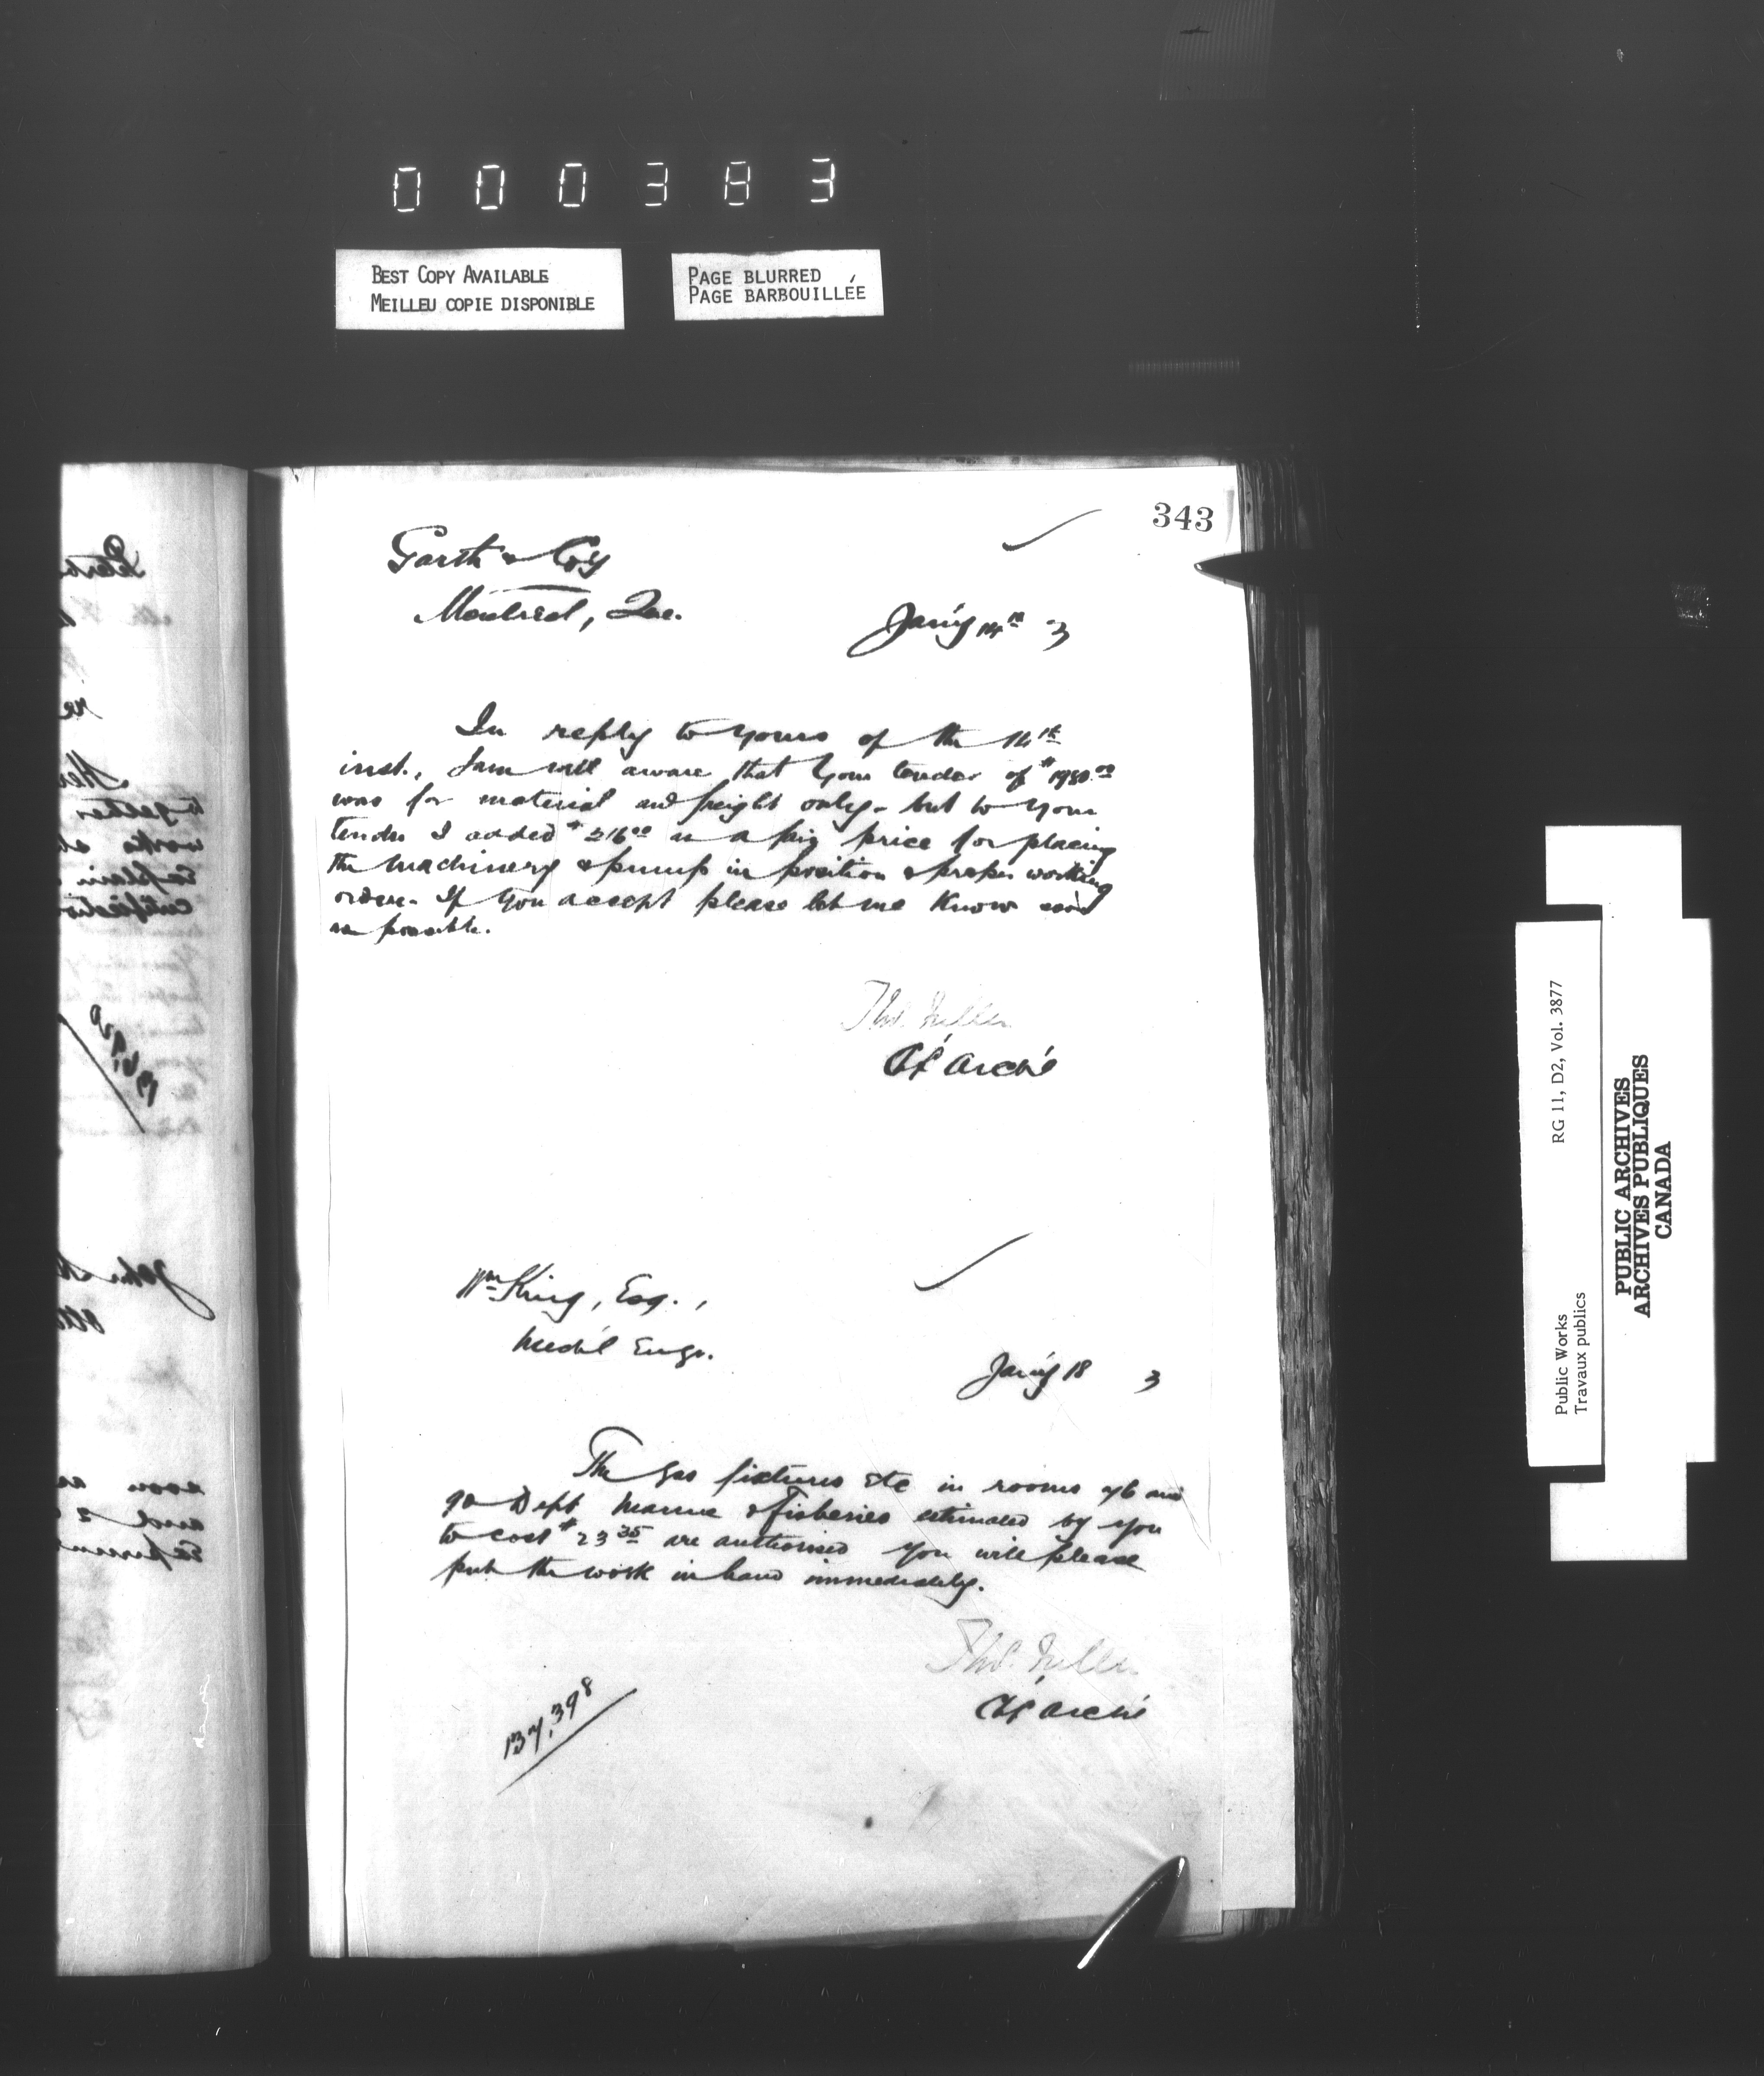 000383
BEST COPY AVAILABLE
MEILLEU COPIE DISPONIBLE
PAGE BLURRED
PAGE BARBOUILLÉE
343
Garth & Coy
Montreal, Que.
Jan'y 14th 3
In reply to yours of the 14th
inst., I am well aware that your tender of $1980.00
was for material and freight only - but to your
tender I added $216.00 as a fair price for placing
the machinery & pump in position & proper working
order. If you accept please let me know
as possible.
Thos. Fuller
Ch. Archt
Wm King, Esq.,
Mech'l Engr.
Jan'y 18 3
The gas fixtures etc in rooms 76 and
90 Dept Marine & Fisheries estimated by you
to cost $23.35 are authorised you will please
put the work in hand immediately.
Thos. Fuller
Ch. Archt
137,398
RG 11, D2, Vol. 3877
Public Works
Travaux publics
PUBLIC ARCHIVES
ARCHIVES PUBLIQUES
CANADA